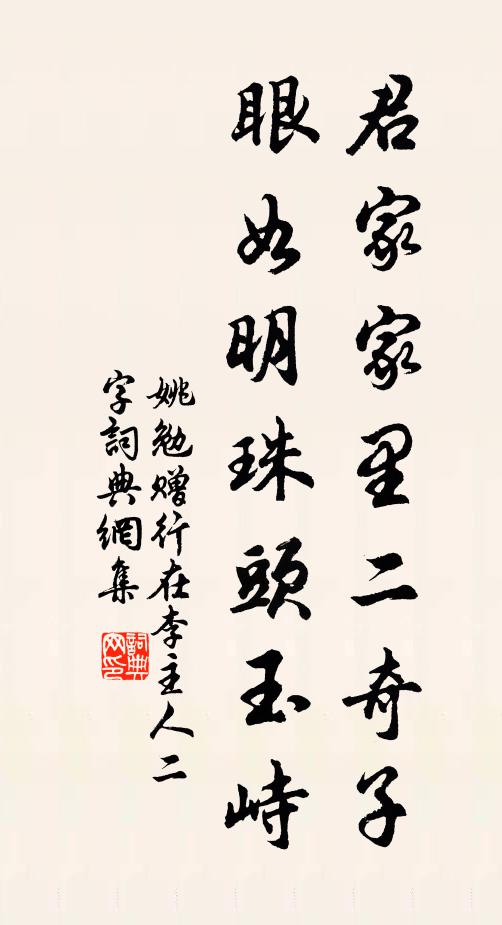 君家家里二奇子
眼如明珠頭玉峙
姚勉贈行在李主人二
字詞典網集
詞典
网印